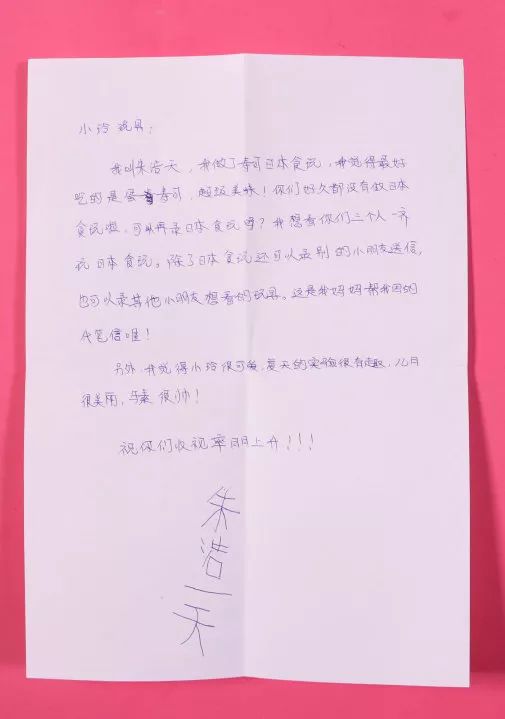 小玲玩具：
我叫朱浩天，我做了寿司日本食玩，我觉得最好
吃的是蛋寿司，超级美味！你们好久都没有做日本
食玩啦，可以再录日本食玩吗？我想看你们三个人一齐
玩日本食玩。除了日本食玩还可以录别的小朋友送信，
也可以录其他小朋友想看的玩具。这是我妈妈帮我的
笔信喔！
另外，我觉得小玲很可爱，夏天的实验很有趣，儿月
很美丽，很帅！
祝你们收视率上升！！！
朱浩天